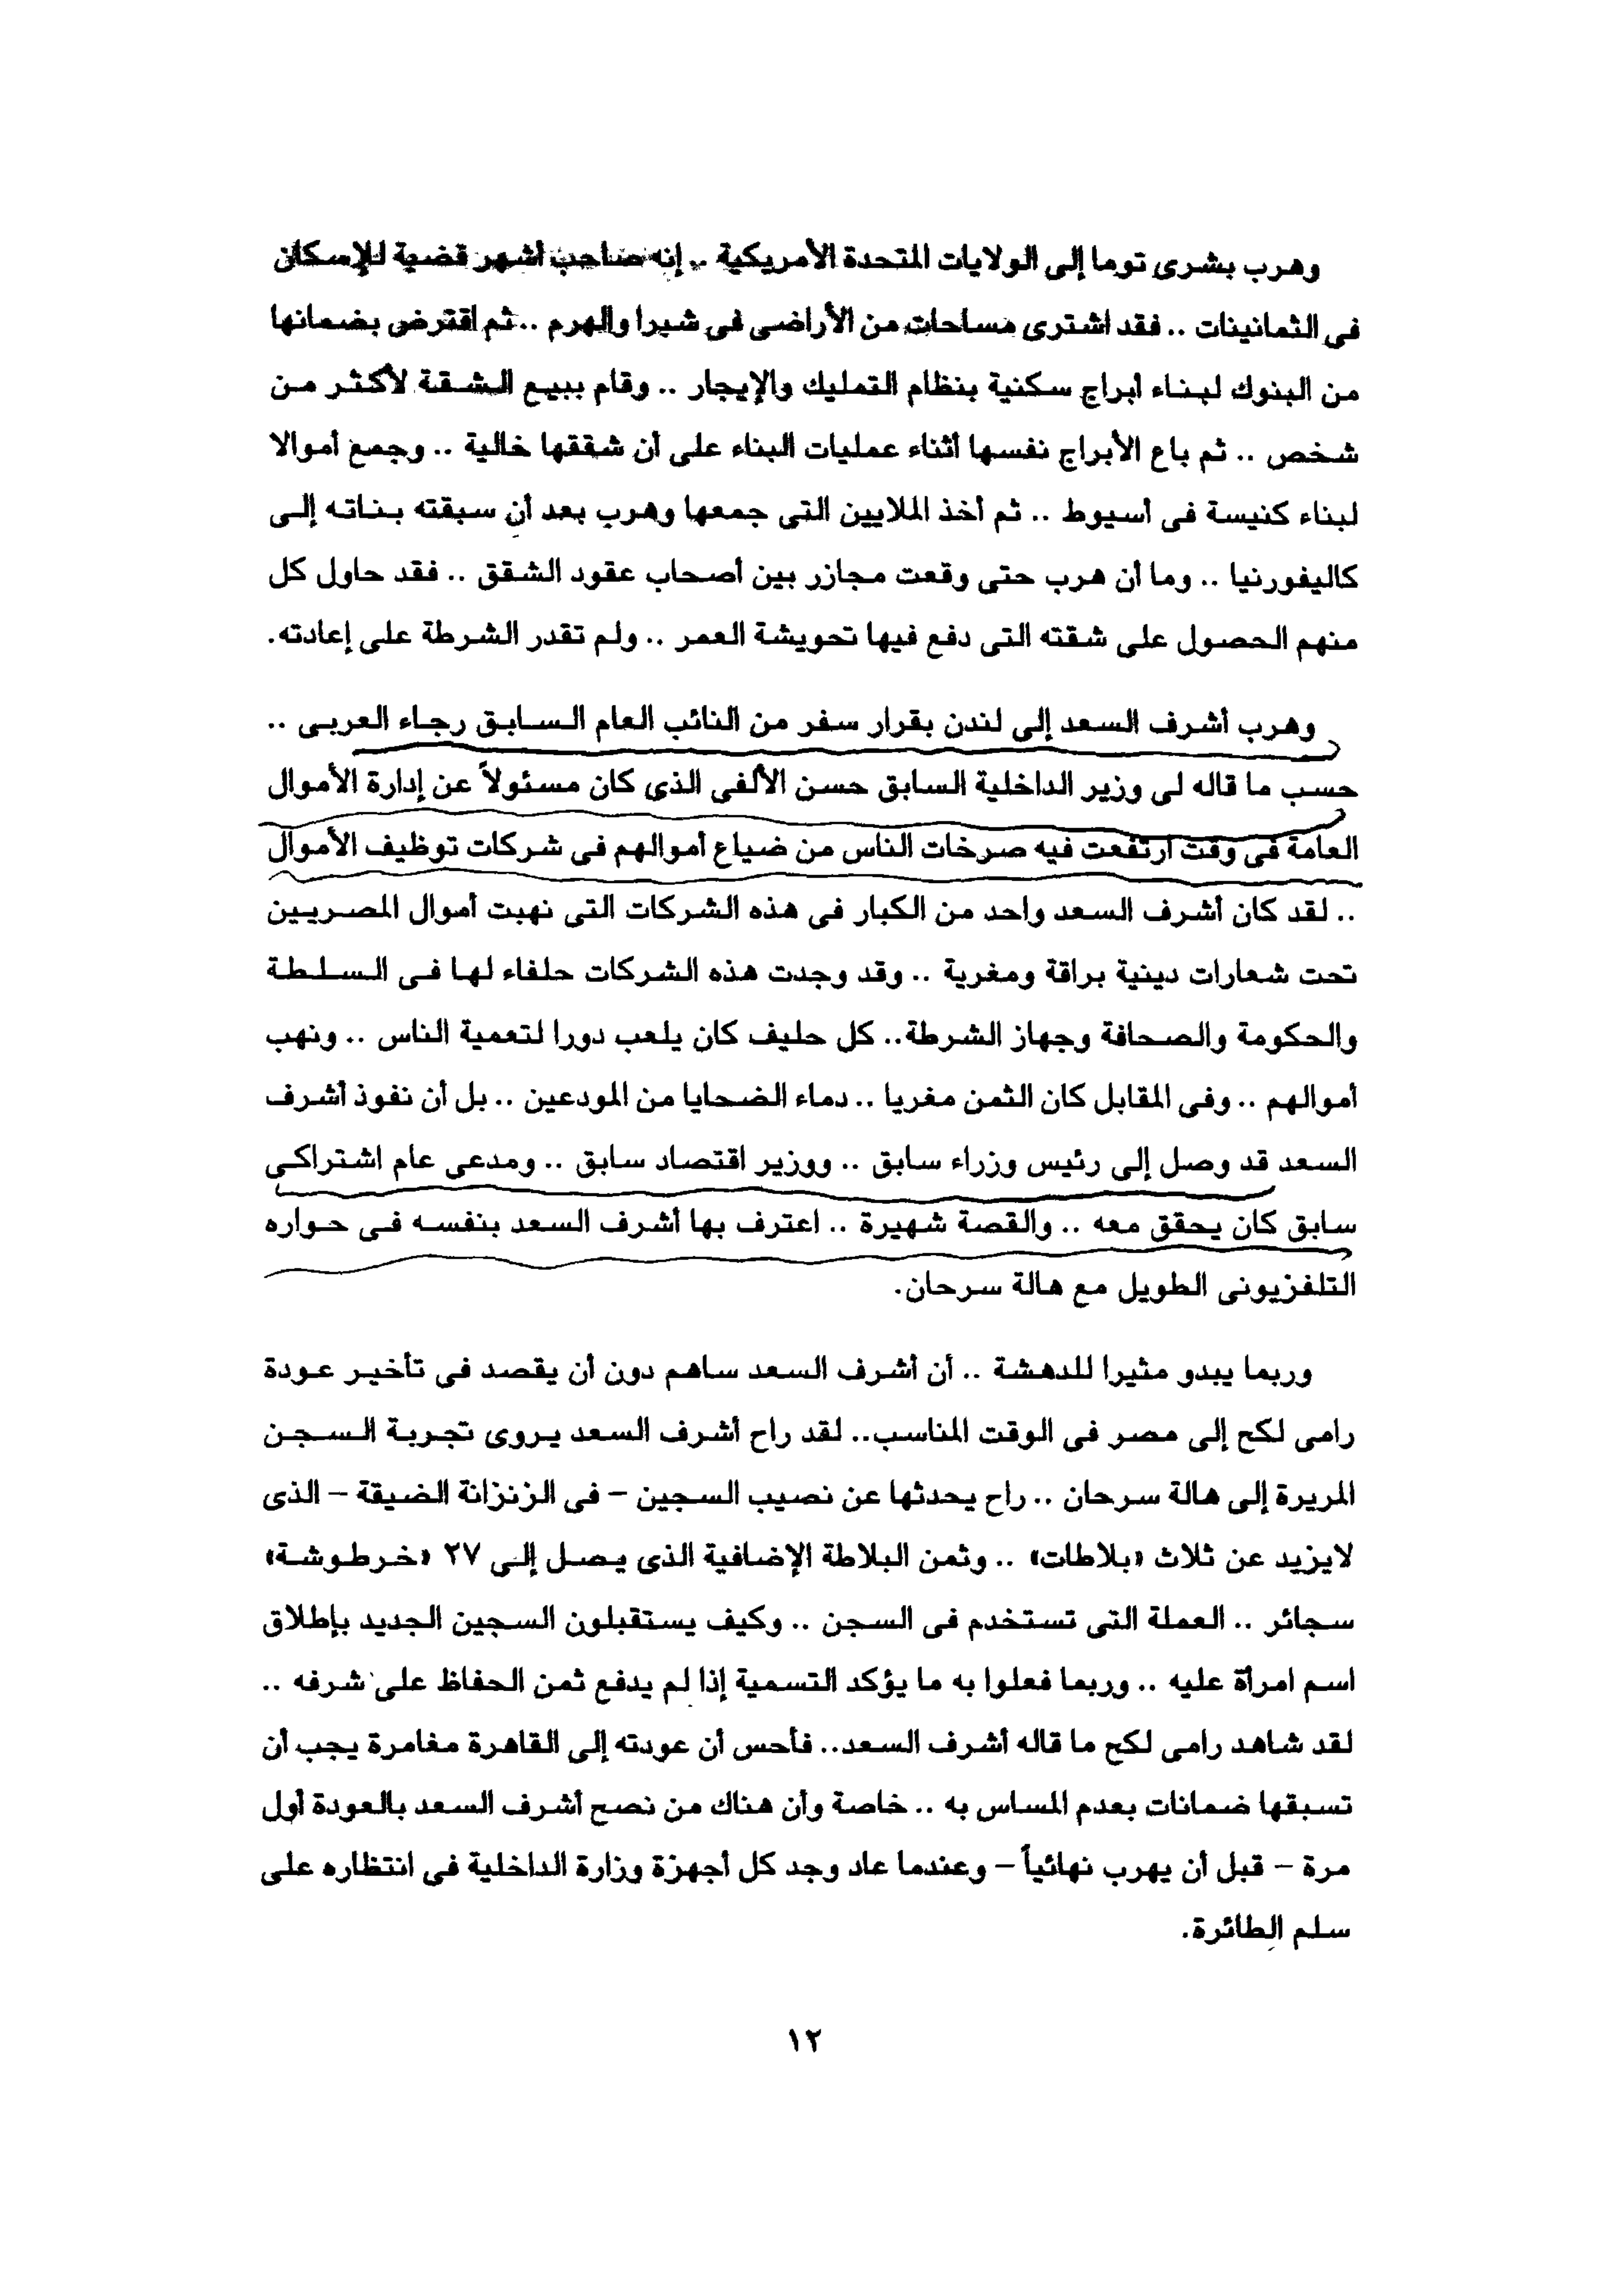 وهرب بشرى توما إلى الولايات المتحدة الأمريكية .. إنه صاحب أشهر قضية للإسكان
فى الثمانينات .. فقد اشترى مساحات من الأراضى فى شبرا والهرم .. ثم اقترض بضمانها
من البنوك لبناء أبراج سكنية بنظام التمليك والإيجار .. وقام ببيع الشقة لأكثر من
شخص .. ثم باع الأبراج نفسها أثناء عمليات البناء على أن شققها خالية .. وجمع أموالا
لبناء كنيسة فى أسيوط .. ثم أخذ الملايين التى جمعها وهرب بعد أن سبقته بناته إلى
كاليفورنيا .. وما أن هرب حتى وقعت مجازر بين أصحاب عقود الشقق .. فقد حاول كل
منهم الحصول على شقته التى دفع فيها تحويشة العمر .. ولم تقدر الشرطة على إعادته.
وهرب أشرف السعد إلى لندن بقرار سفر من النائب العام السابق رجاء العربى ..
حسب ما قاله لى وزير الداخلية السابق حسن الألفى الذى كان مسئولاً عن إدارة الأموال
العامة فى وقت ارتفعت فيه صرخات الناس من ضياع أموالهم فى شركات توظيف الأموال
.. لقد كان أشرف السعد واحد من الكبار فى هذه الشركات التى نهبت أموال المصريين
تحت شعارات دينية براقة ومغرية .. وقد وجدت هذه الشركات حلفاء لها فى السلطة
والحكومة والصحافة وجهاز الشرطة.. كل حليف كان يلعب دورا لتعمية الناس .. ونهب
أموالهم .. وفى المقابل كان الثمن مغريا .. دماء الضحايا من المودعين .. بل أن نفوذ أشرف
السعد قد وصل إلى رئيس وزراء سابق .. ووزير اقتصاد سابق .. ومدعى عام اشتراكى
سابق كان يحقق معه .. والقصة شهيرة .. اعترف بها أشرف السعد بنفسه فى حواره
التلفزيونى الطويل مع هالة سرحان.
وربما يبدو مثيرا للدهشة .. أن أشرف السعد ساهم دون أن يقصد فى تأخير عودة
رامى لكح إلى مصر فى الوقت المناسب.. لقد راح أشرف السعد يروى تجربة السجن
المريرة إلى هالة سرحان .. راح يحدثها عن نصيب السجين – فى الزنزانة الضيقة – الذى
لايزيد عن ثلاث «بلاطات» .. وثمن البلاطة الإضافية الذى يصل إلى ٢٧ «خرطوشة»
سجائر .. العملة التى تستخدم فى السجن .. وكيف يستقبلون السجين الجديد بإطلاق
اسم امرأة عليه .. وربما فعلوا به ما يؤكد التسمية إذا لم يدفع ثمن الحفاظ على شرفه ..
لقد شاهد رامى لكح ما قاله أشرف السعد.. فأحس أن عودته إلى القاهرة مغامرة يجب أن
تسبقها ضمانات بعدم المساس به .. خاصة وأن هناك من نصح أشرف السعد بالعودة أول
مرة – قبل أن يهرب نهائياً – وعندما عاد وجد كل أجهزة وزارة الداخلية فى انتظاره على
سلم الطائرة.
١٢